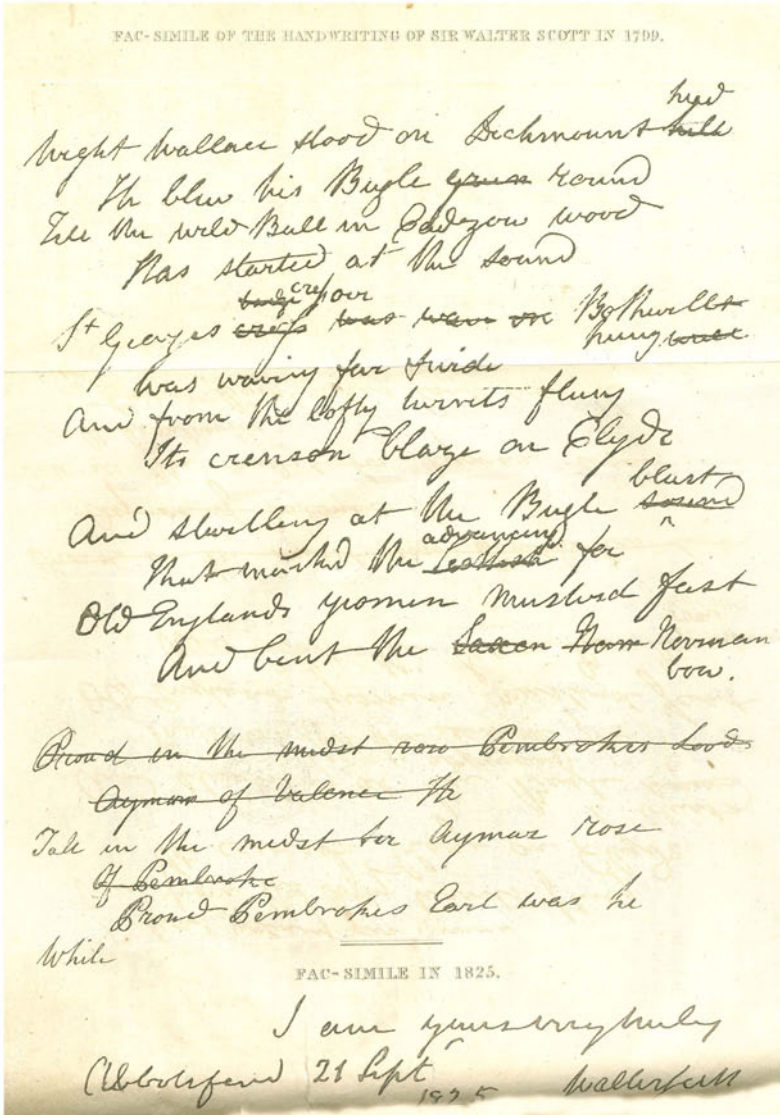 FAC-SIMILE OF THE HANDWRITING OF SIR WALTER SCOTT IN 1799.
head
Wight Wallace stood on Dechmount hill
He blew his Bugle round
Till the wild Bull in Cadzow wood
Has started at the sound
cross oer
St Georges cross was wave or Bothwell
hung
Was waving far & wide
And from the lofty turrets flung
Its crimson blaze on Clyde
blast
And swelling at the Bugle sound
advancing
That marked the Scottish foe
Old Englands yeomen musterd fast
And bent the Saxon Nom Norman
bow.
Proud in the midst rose Pembrokes Lood
Aymar of Valence He
Tall in the midst Sir Aymar rose
Of Pembroke
Proud Pembrokes Earl was he
While
FAC-SIMILE IN 1825.
I am yours very truly
Abbotsford 21 Sept Walter Scott
1825